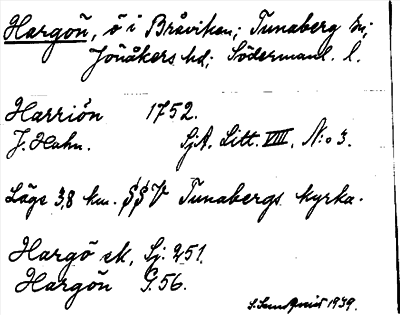 Hargön, ö i Bråviken; Tunaberg sn;
Jönåkers hd; Södermanl. l.
Harriön 1752.
J. Hahn. SjA. Litt. VIII. N:o 3.
Läge 3,8 km. SSV Tunabergs kyrka.
Hargö ek, Sj. 251.
Hargön G. 56.
S. Sundqvist 1939.